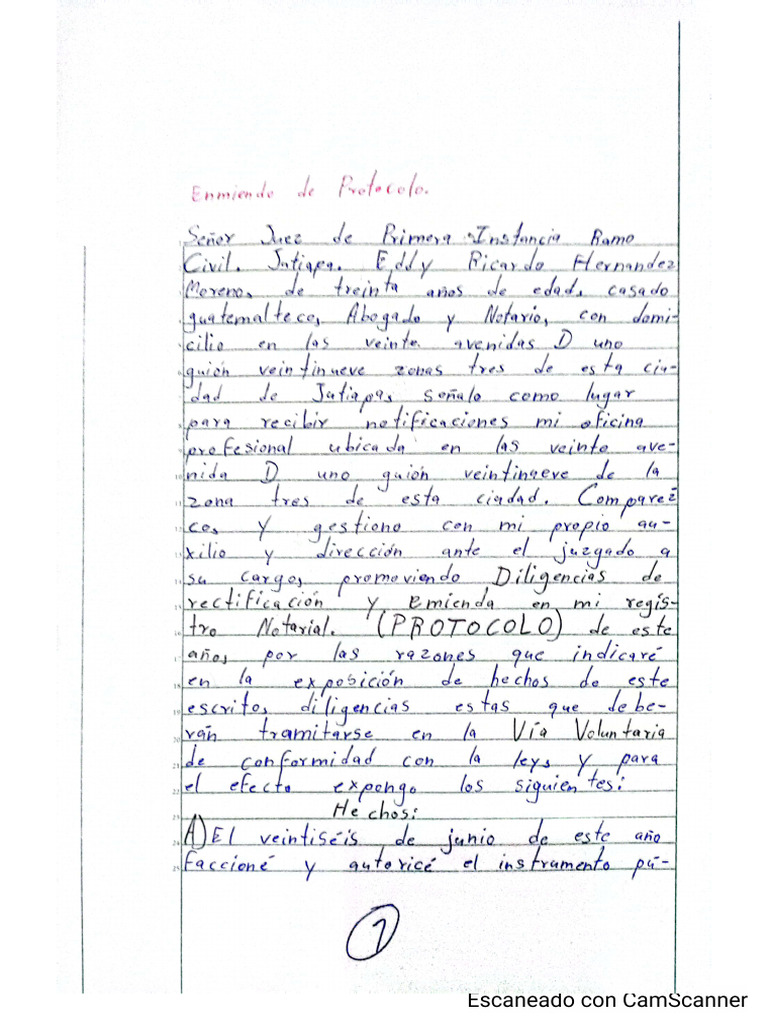 Enmiendo de Protocolo.
Señor Juez de Primera Instancia Ramo
Civil. Jutiapa. Eddy Ricardo Hernandez
Moreno, de treinta años de edad, casado
guatemalteco, Abogado y Notario, con domi-
cilio en las veinte avenidas D uno
guión veintinueve zonas tres de esta ciu-
dad de Jutiapa, señalo como lugar
para recibir notificaciones mi oficina
profesional ubicada en las veinte ave-
nida D uno guión veintinueve de la
zona tres de esta ciudad. Comparez
co, y gestiono con mi propio au-
xilio y dirección ante el juzgado a
su cargo, promoviendo Diligencias de
rectificación y Emienda en mi regis-
tro Notarial. (PROTOCOLO) de este
año, por las razones que indicaré
en la exposición de hechos de este
escrito, diligencias estas que debe-
rán tramitarse en la Vía Voluntaria
de conformidad con la ley, y para
el efecto expongo los siguientes:
Hechos:
A) El veintiséis de junio de este año
faccioné y autoricé el instrumento pú-
1
Escaneado con CamScanner